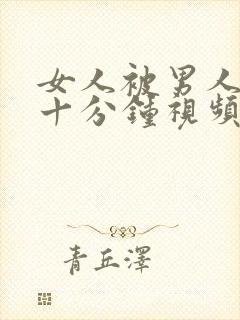 女人被男人
十分鐘視頻
青丘澤